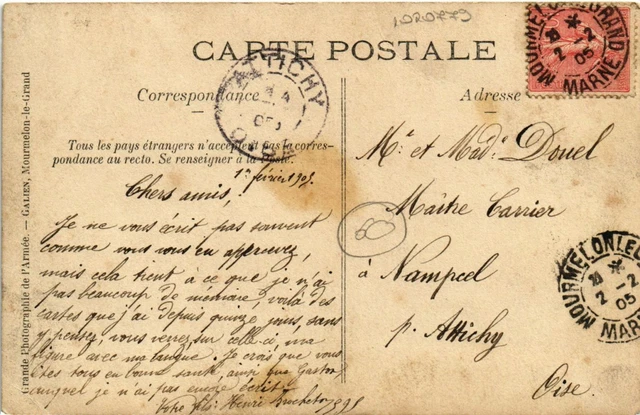 1020779
CARTE POSTALE
Correspondance
Adresse
Tous les pays étrangers n'acceptent pas la corres-
pondance au recto. Se renseigner à la Poste.
Grande Photographie de l'Armée. — GALIEN, Mourmelon-le-Grand
ATTICHY
OISE
05
MOURMELON-LE-GRAND
2 -2
05
MARNE
1er février 1905.
Chers amis,
Je ne vous écrit pas souvent
comme vous vous en apercevez,
mais cela tient à ce que je n'ai
pas beaucoup de memoire, voilà des
cartes que j'ai depuis quinze jours, sans
y penser, vous verrez sur celle-ci, ma
figure avec ma langue. Je crois que vous
êtes tous en bonne santé, ainsi que Gaston
auquel je n'ai pas encore écrit.
Votre fils: Henri
Mr et Madme Douel
Maître Carrier
à Nampcel
p. Attichy
Oise.
60
MOURMELON-LE-G
2 -2
05
MARNE